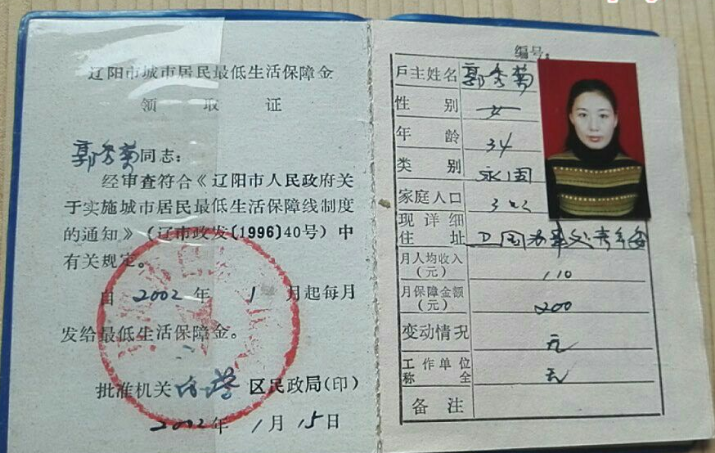 辽阳市城市居民最低生活保障金
领取证
郭秀菊同志:
经审查符合《辽阳市人民政府关
于实施城市居民最低生活保障线制度
的通知》(辽市政发[1996]40号)中
有关规定。
自2002年1月起每月
发给最低生活保障金。
批准机关 区民政局(印)
2002年1月15日
编号:
户主姓名 郭秀菊
性别 女
年龄 34
类别
家庭人口 3人
现详细
住址
月人均收入
(元) 110
月保障金额
(元) 200
变动情况 无
工作单位
称全 无
备注